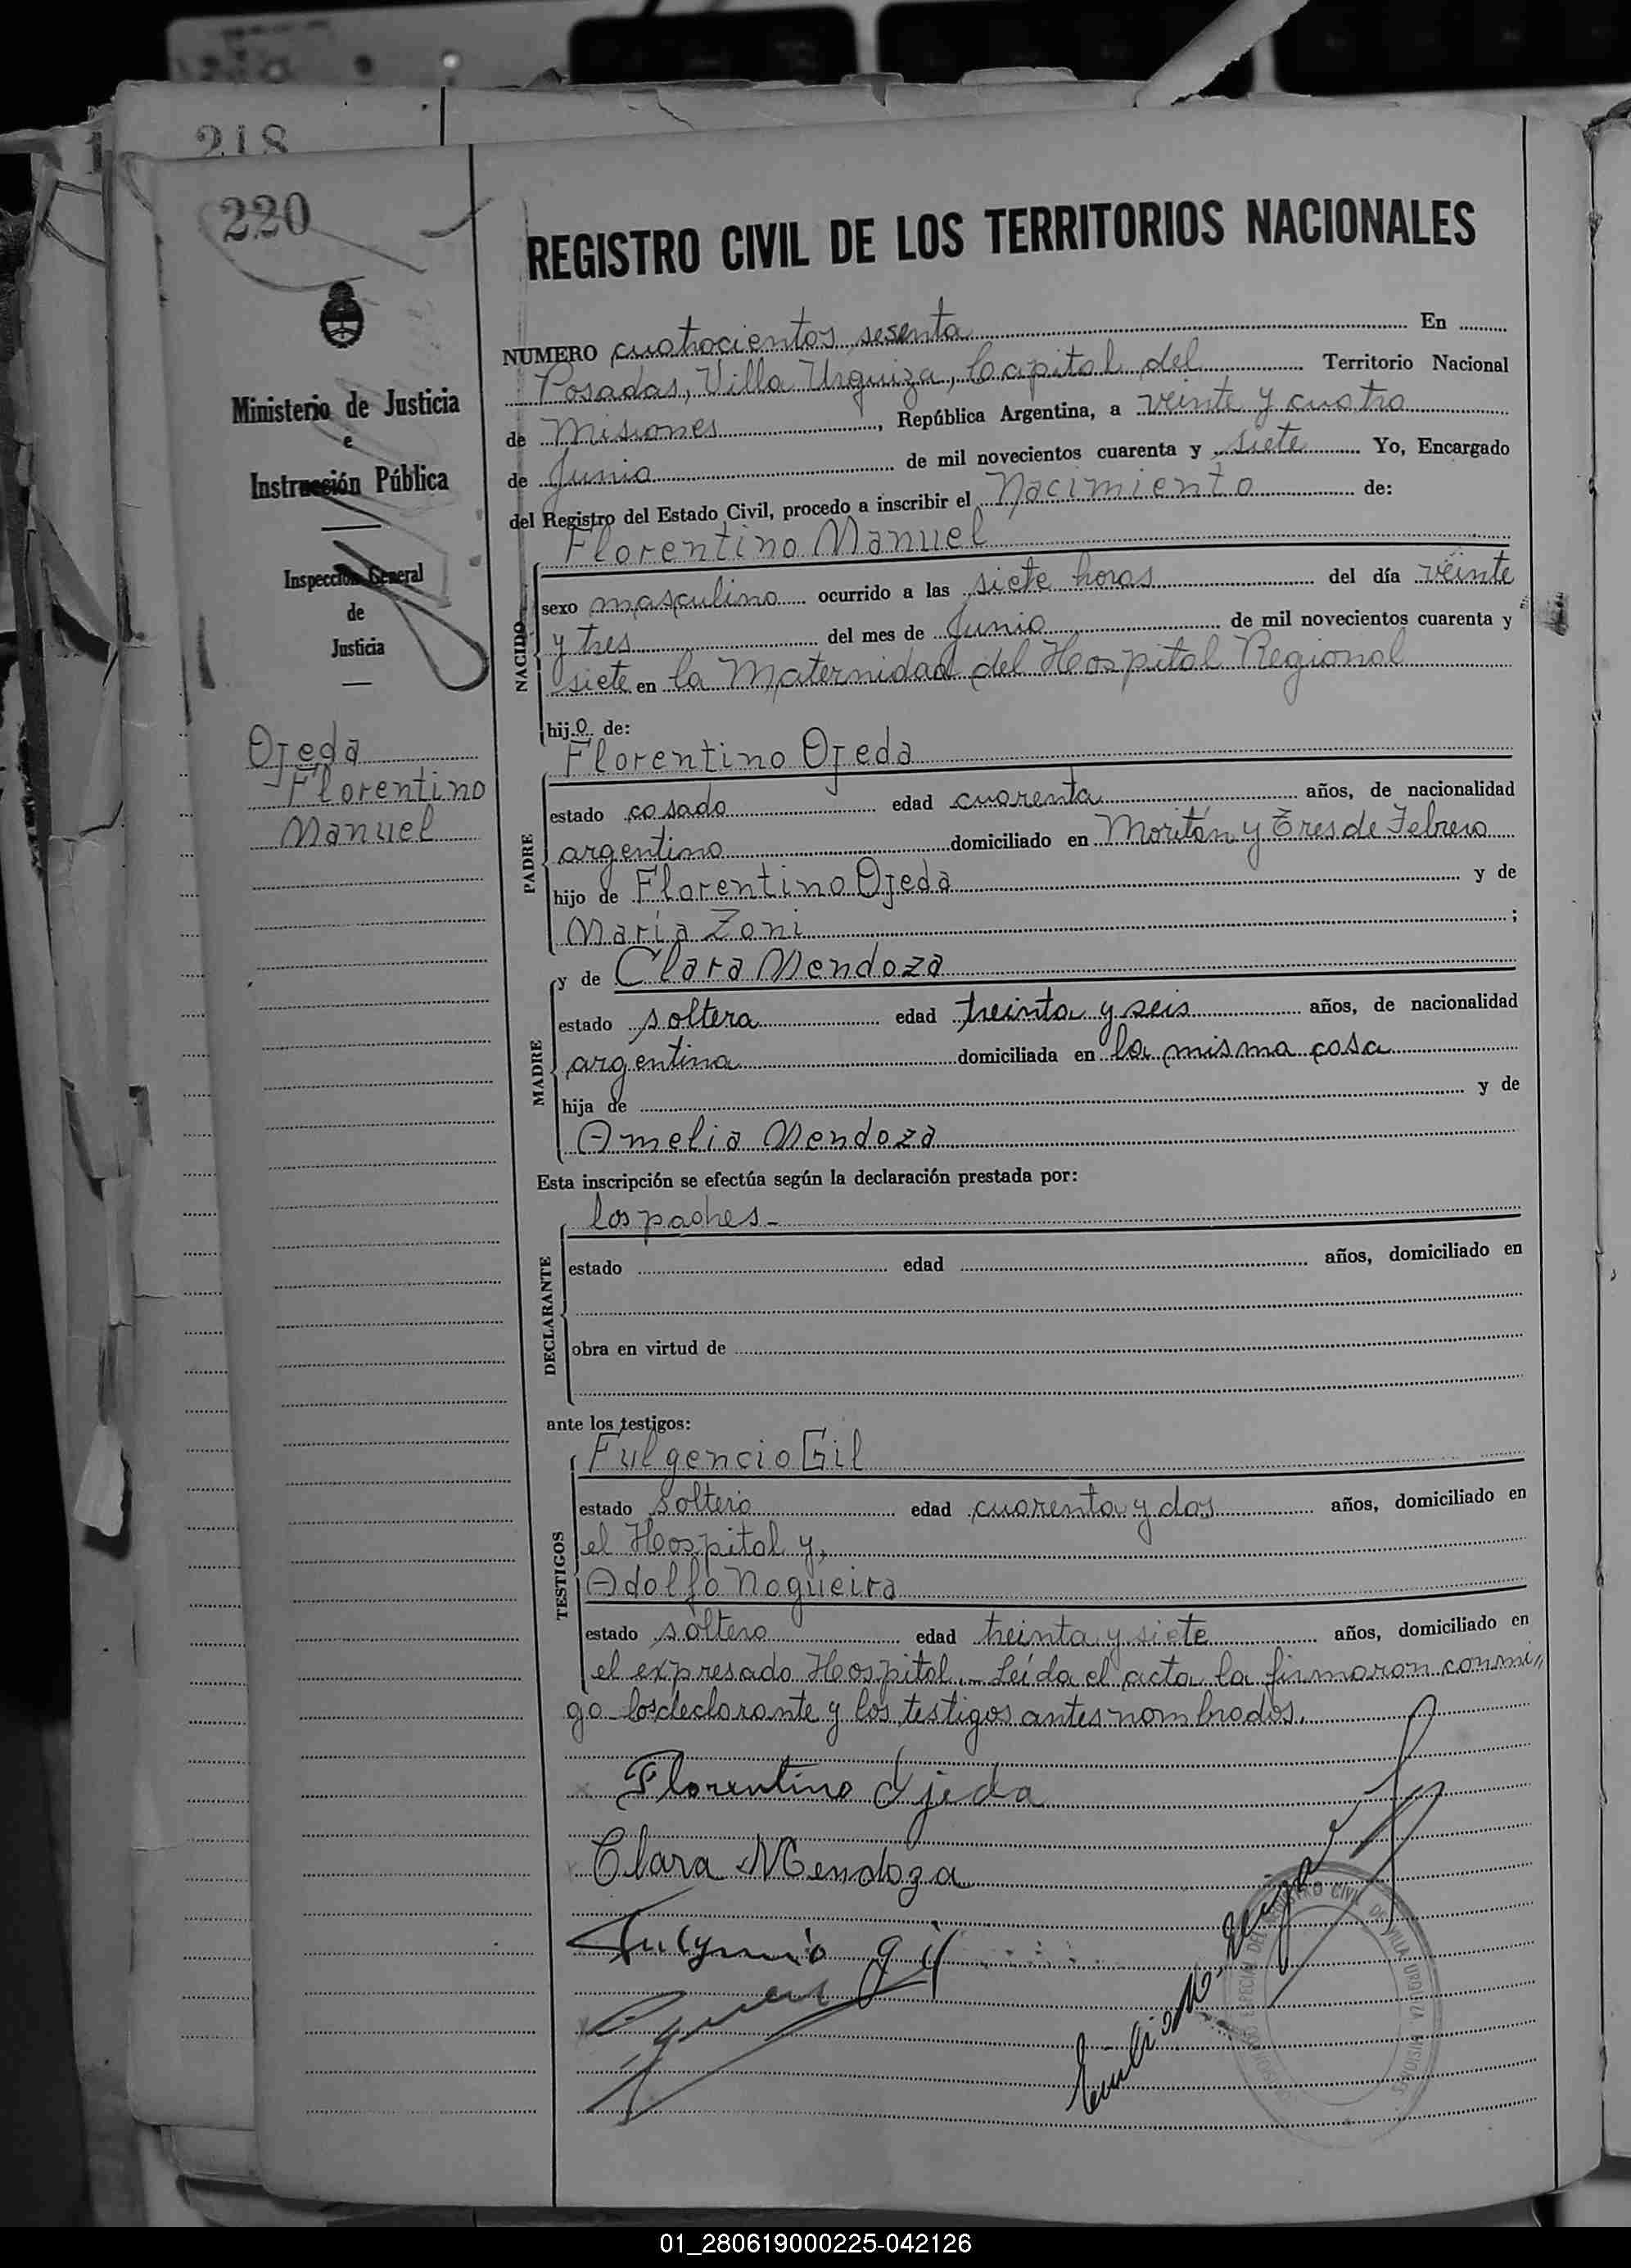 218
220
Ministerio de Justicia
e
Instrucción Pública
Inspección General
de
Justicia
Ojeda
Florentino
Manuel
REGISTRO CIVIL DE LOS TERRITORIOS NACIONALES
NUMERO cuatrocientos sesenta En
Posadas, Villa Urquiza, Capital del Territorio Nacional
de Misiones, República Argentina, a veinte y cuatro
de Junio de mil novecientos cuarenta y siete Yo, Encargado
del Registro del Estado Civil, procedo a inscribir el Nacimiento de:
Florentino Manuel
NACIDO
sexo masculino ocurrido a las siete horas del día veinte
y tres del mes de Junio de mil novecientos cuarenta y
siete en la Maternidad del Hospital Regional
hijo de:
Florentino Ojeda
PADRE
estado casado edad cuarenta años, de nacionalidad
argentino domiciliado en Moritán y Tres de Febrero
hijo de Florentino Ojeda y de
María Zoni ;
y de Clara Mendoza
MADRE
estado soltera edad treinta y seis años, de nacionalidad
argentina domiciliada en la misma casa
hija de y de
Amelia Mendoza
Esta inscripción se efectúa según la declaración prestada por:
los padres-
DECLARANTE
estado edad años, domiciliado en
obra en virtud de
ante los testigos:
Fulgencio Gil
TESTIGOS
estado soltero edad cuarenta y dos años, domiciliado en
el Hospital y,
Adolfo Nogueira
estado soltero edad treinta y siete años, domiciliado en
el expresado Hospital.- Leída el acta la firmaron conmi,,
go los declarante y los testigos antes nombrados.
Florentino Ojeda
Clara Mendoza
Fulgencio Gil
REGISTRO CIVIL DE VILLA URQUIZA MISIONES
01_280619000225-042126